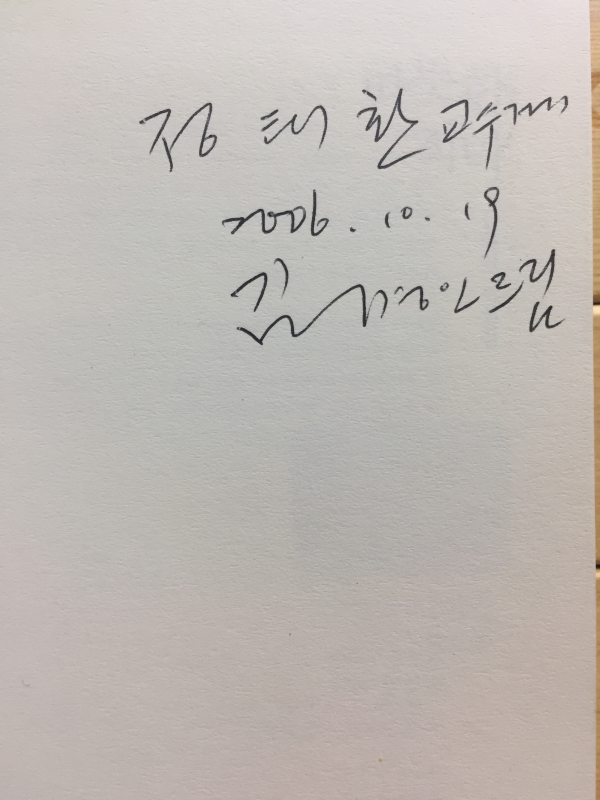 정태환 교수께
2006. 10. 19
김 드림